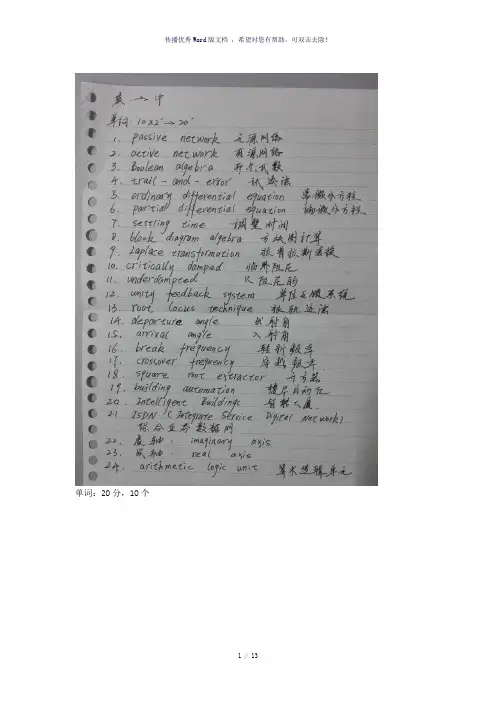 传播优秀Word版文档 ，希望对您有帮助，可双击去除！
英→中
单词: 10×2'→20'
1. passive network 无源网络
2. active network 有源网络
3. Boolean algebra 布尔代数
4. trail-and-error 试凑法
5. ordinary differential equation 常微分方程
6. partial differential equation 偏微分方程
7. settling time 调整时间
8. block diagram algebra 方块图计算
9. Laplace transformation 拉普拉斯变换
10. critically damped 临界阻尼
11. underdampted 欠阻尼的
12. unity feedback system 单位反馈系统
13. root locus technique 根轨迹法
14. departure angle 出射角
15. arrival angle 入射角
16. break frequency 转折频率
17. crossover frequency 穿越频率
18. square root extractor 开方器
19. building automation 楼宇自动化
20. Intelligent Buildings 智能大厦.
21 ISDN (Integrate Service Digital Network)
综合业务数据网
22. 虚轴. imaginary axis
23. 实轴. real axis
24. arithmetic logic unit 算术逻辑单元
单词：20分，10个
1 / 13